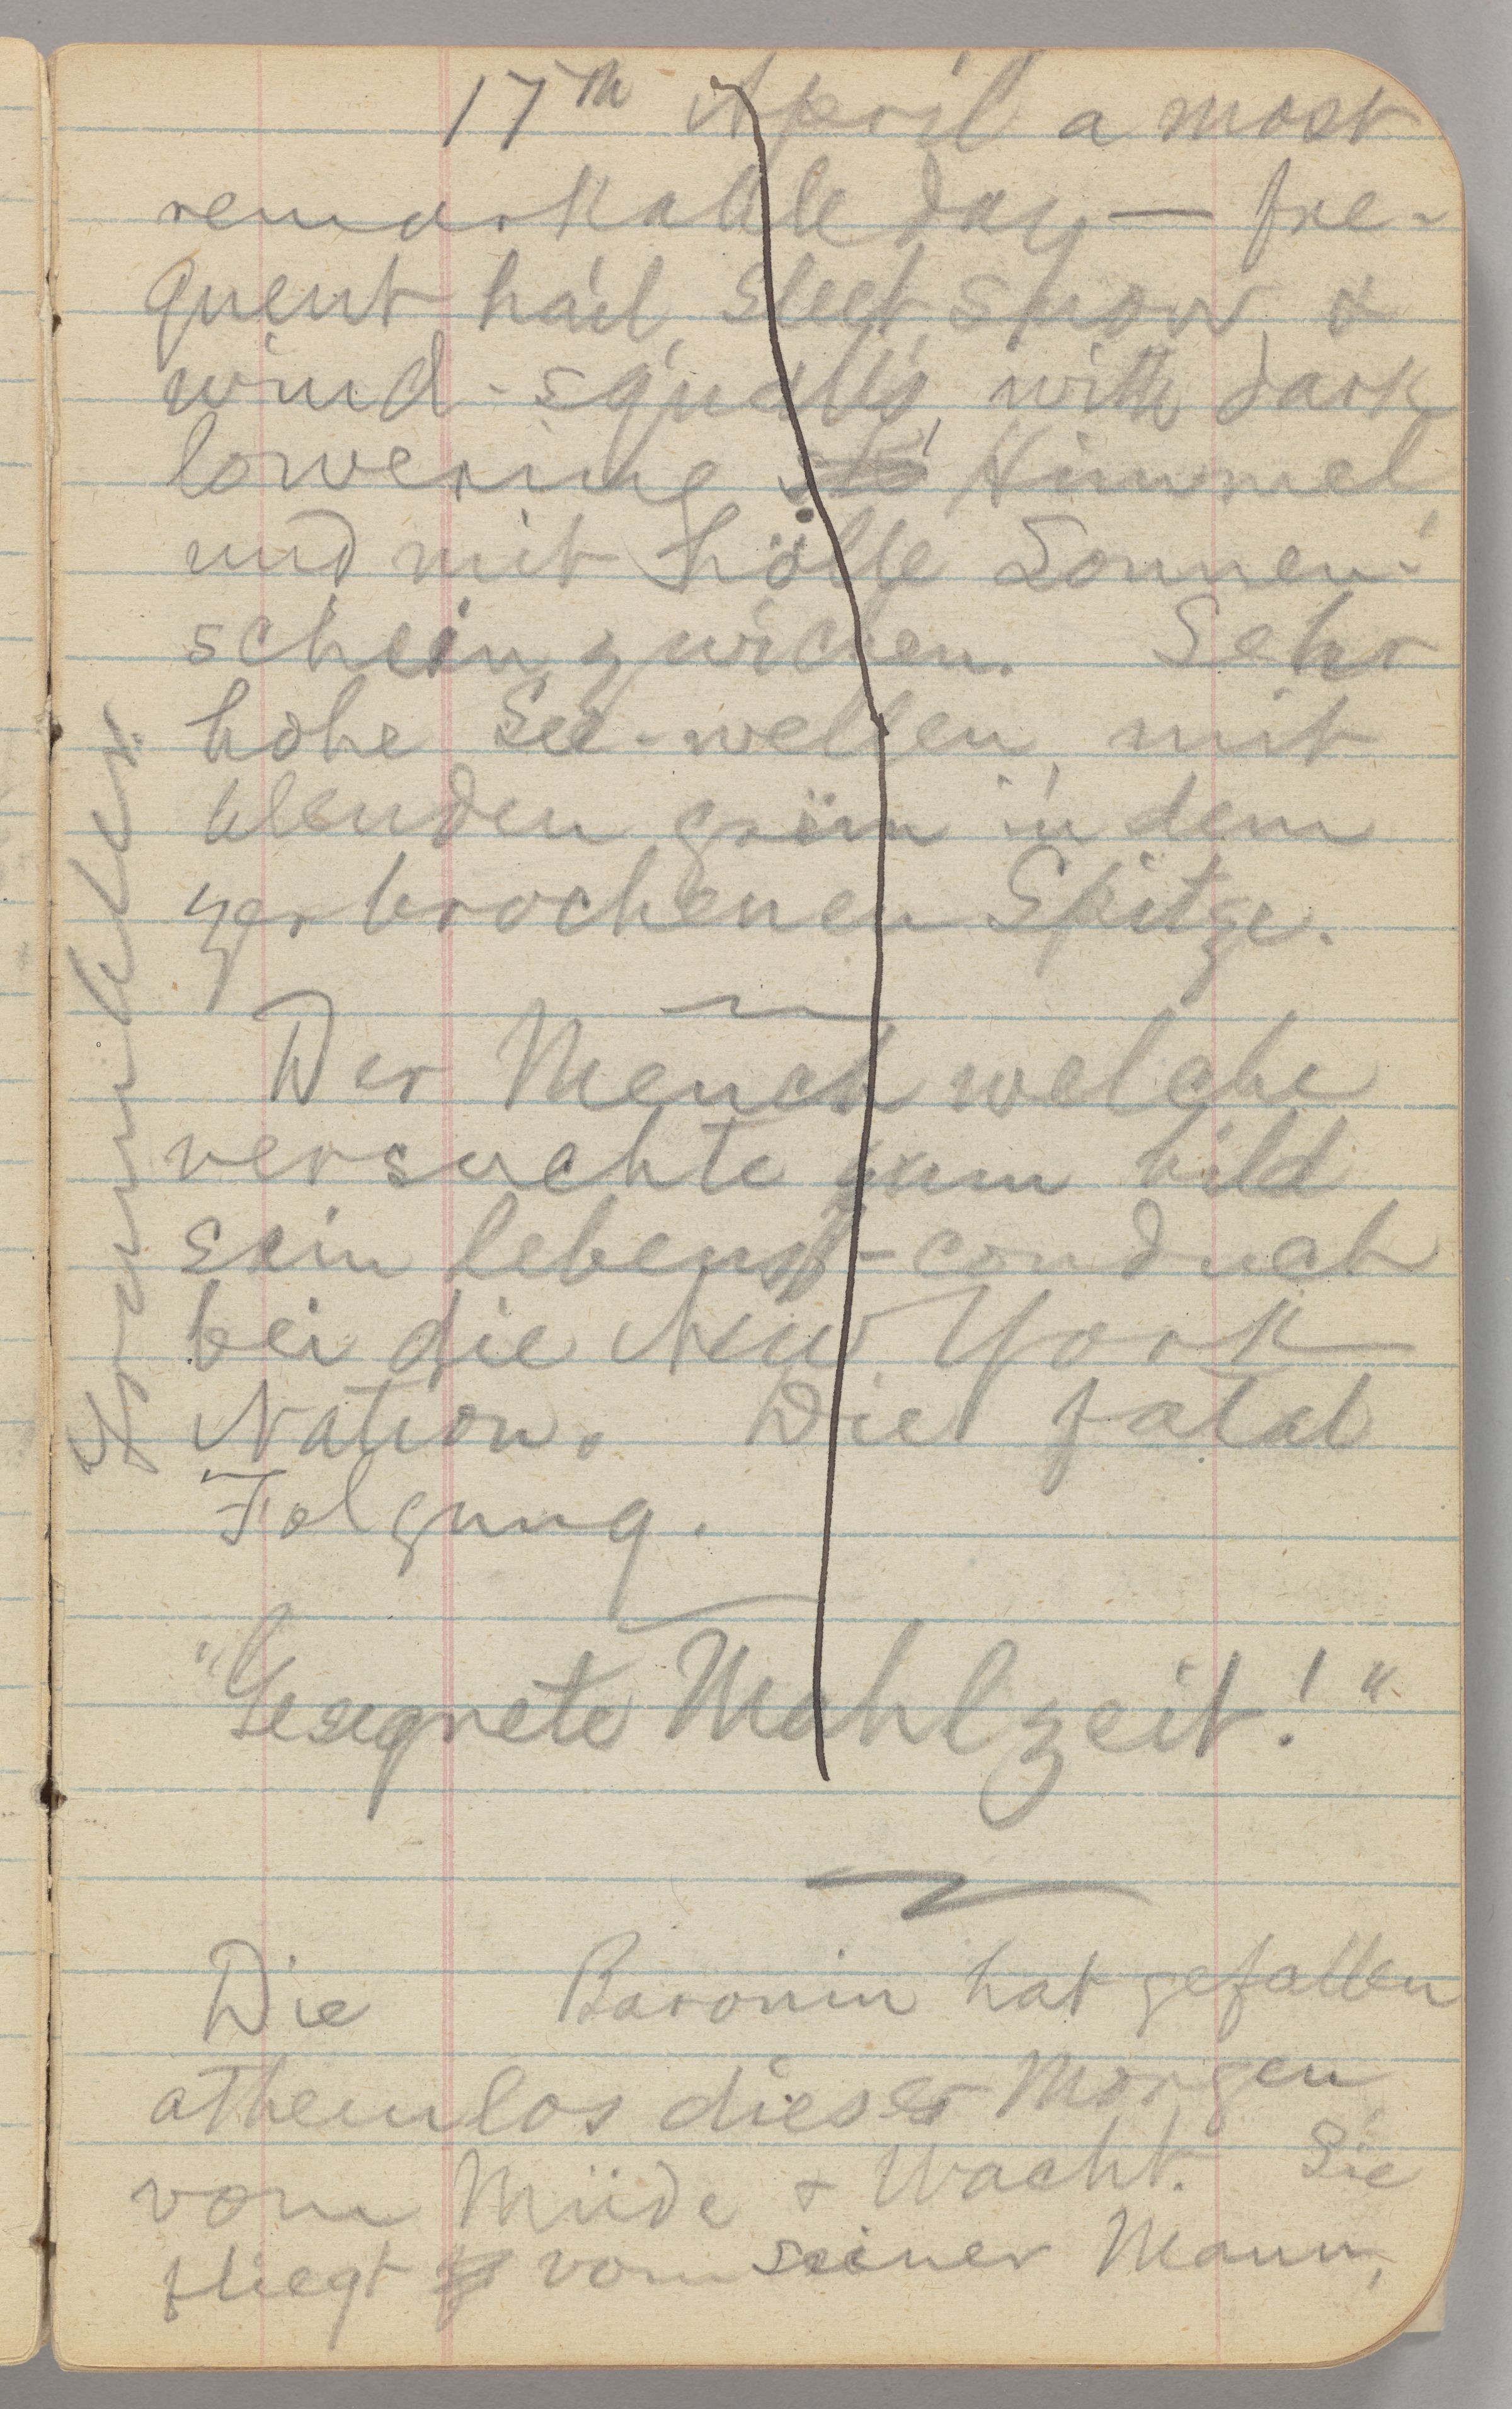 17th April a most
remarkable day — fre-
quent hail, sleet, snow, &
wind-squalls, with dark
lowering Himmel,
und mit hölle Sonnen-
schein zwichen. Sehr
hohe See-wellen, mit
blenden grün in dem
zerbrochenen Spitze.
Der Mench welche
versuchte zum bild
sein lebens-conduct
bei die New York
Nation. Die fatal
Folgung.
"Gesegnete Mahlzeit!"
Die Baronin hat gefallen
athemlos dieser Morgen
vom Müde & Wacht. Sie
fliegt vom seiner Mann,